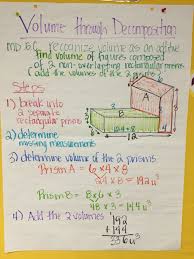 Volume through Decomposition
MD.5C recognize volume as an additive
find volume of figures composed
of 2 non-overlapping rectangular prisms
(add the volumes of the 2
Steps
1) break into
2 separate
rectangular prisms
2) determine
missing measurements
3) determine volume of the 2 prisms
Prism A = 6 x 4 x 8
24 x 8 = 192 u³
Prism B = 8 x 6 x 3
48 x 3 = 144 u³
4) Add the 2 volumes
192
+ 144
336 u³
A
B